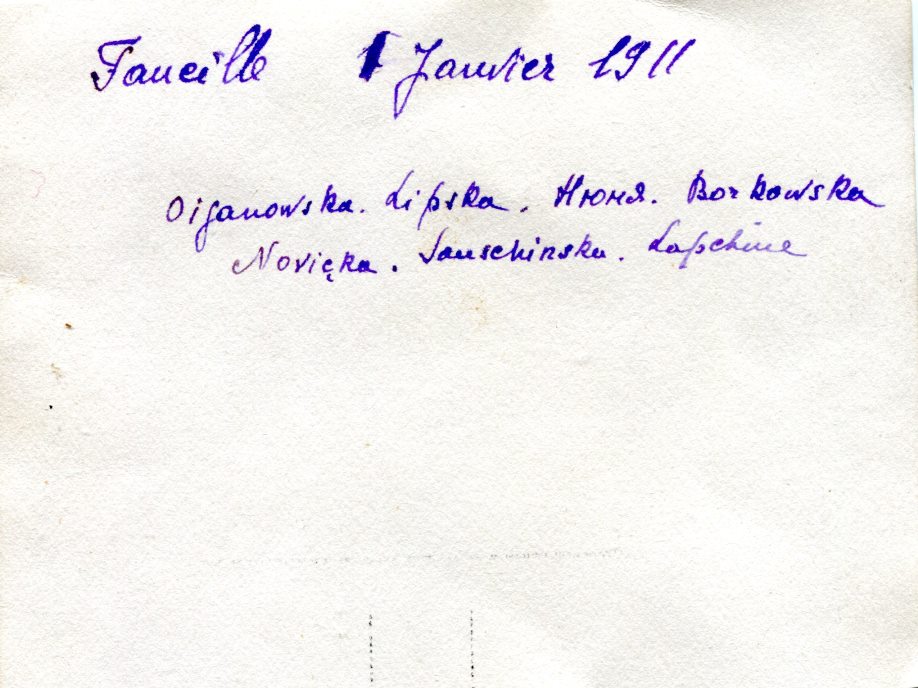 Faucille 1 Janvier 1911
Oiganowska. Lipska. Нюня. Borkowska
Novięka. Lapchine